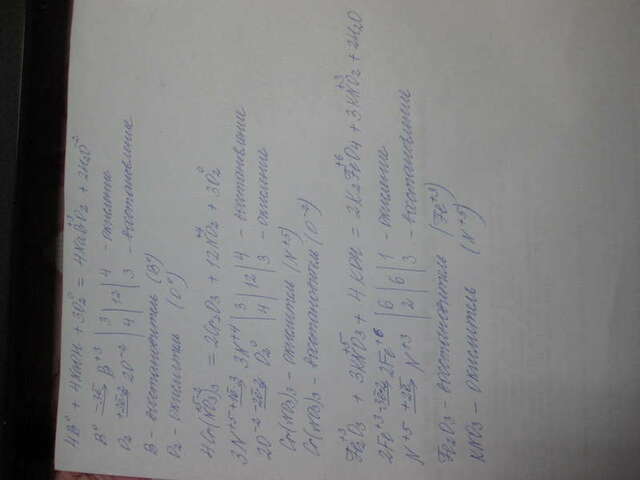 4B⁰ + 4NaOH + 3O₂⁰ = 4NaB⁺³O₂ + 2H₂O⁻²
B⁰ -3e B⁺³ | 3 | 12 | 4 - окисление
O₂ +2e 2O⁻² | 4 | | 3 - восстановление
B - восстановитель (B⁰)
O₂ - окислитель (O⁰)
4Cr(NO₃)₃ = 2Cr₂O₃ + 12NO₂ + 3O₂⁰
3N⁺⁵ +1e 3N⁺⁴ | 3 | | 4 - восстановление
2O⁻² -2e O₂⁰ | 4 | 12 | 3 - окисление
Cr(NO₃)₃ - окислитель (N⁺⁵)
Cr(NO₃)₃ - восстановитель (O⁻²)
Fe₂⁺³O₃ + 3KN⁺⁵O₃ + 4KOH = 2K₂Fe⁺⁶O₄ + 3KN⁺³O₂ + 2H₂O
2Fe⁺³ -3e 2Fe⁺⁶ | 6 | 6 | 1 - окисление
N⁺⁵ +2e N⁺³ | 2 | | 3 - восстановление
Fe₂O₃ - восстановитель (Fe⁺³)
KNO₃ - окислитель (N⁺⁵)